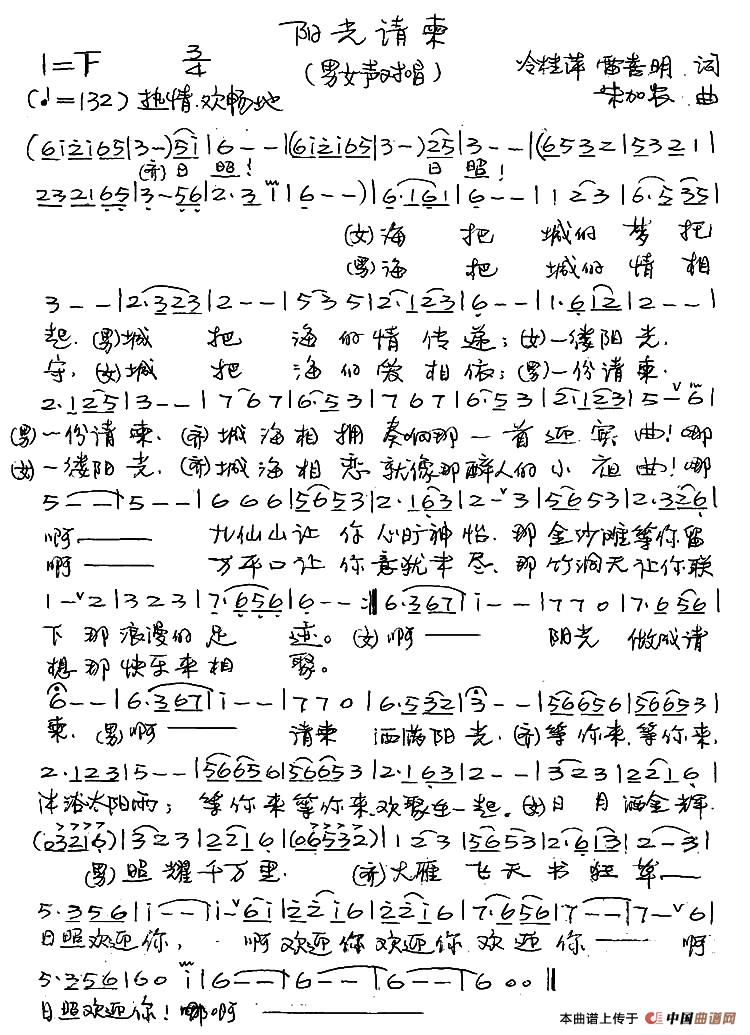 阳光请柬
1=下 3/4 (男女声对唱) 冷桂萍 雷喜明 词
(♩=132) 热情.欢畅地 朱加农 曲
(6i2i65|3--)5i|6--|(6i2i65|3--)25|3--|(6532|5321|
(齐)日 照! 日 照!
232165|3-56|2·3i|6--)|6·161|6--|123|6·535|
(女)海 把 城的 梦 托
(男)海 把 城的 情 相
3--|2·323|2--|535|2·123|6--|1·612|2--|
起.(男)城 把 海的情传递;(女)一缕阳光.
守,(女)城 把 海的爱相依;(男)一份请柬.
2·125|3--|767|6·53|767|6·53|2·123|5-6|
(男)一份请柬.(齐)城海相拥 奏响那一首迎宾曲!哪
(女)一缕阳光.(齐)城海相恋 就像那醉人的小夜曲!哪
5--|5--|666|5653|2·163|2-3|5653|2·326|
啊—— 九仙山让你心旷神怡.那金沙滩等你留
啊—— 万平口让你意犹未尽.那竹洞天让你联
1-2|323|7·656|6--:‖6·367|i--|770|7·656|
下那浪漫的足 迹。(女)啊—— 阳光 做成请
想那快乐来相 聚。
6--|6·367|i--|770|6·532|3--|566656|566653|
柬.(男)啊—— 请柬 洒满阳光.(齐)等你来.等你来,
2·123|5--|566656|566653|2·163|2--|323|2216|
沐浴太阳雨; 等你来等你来.欢聚在一起。(女)日月洒金辉.
(03216)|323|2216|(06532)|123|5653|2·613|2--|
(男)照耀千万里. (齐)大雁 飞天书狂草—
5·356|i--|i-6i|22i6|22i6|7·656|7--|7-6|
日照欢迎你, 啊欢迎你欢迎你欢迎你—— 啊
5·356|60i|6--|6--|6--|600‖
日照欢迎你!哪啊——
本曲谱上传于 中国曲谱网